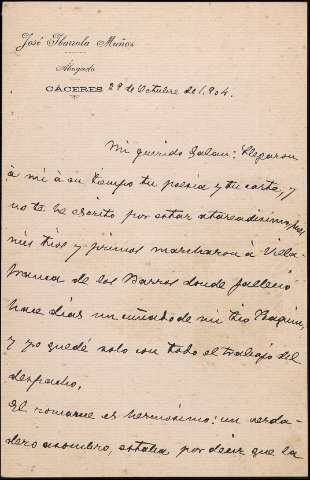 José Ibarrola Muñoz
Abogado
CÁCERES 29 de Octubre de 1.904.
Mi querido Galan: Llegaron
á mi á su tiempo tu poesia y tu carta, y
no te he escrito por estar atareadisimo, pues
mis tios y primos marcharon á Villa-
franca de los Barros donde falleció
hace dias un cuñado de mi tio Joaquin,
y yo quedé solo con todo el trabajo del
despacho.
El romance es hermosisimo: un verda-
dero asombro, estaba por decir que la